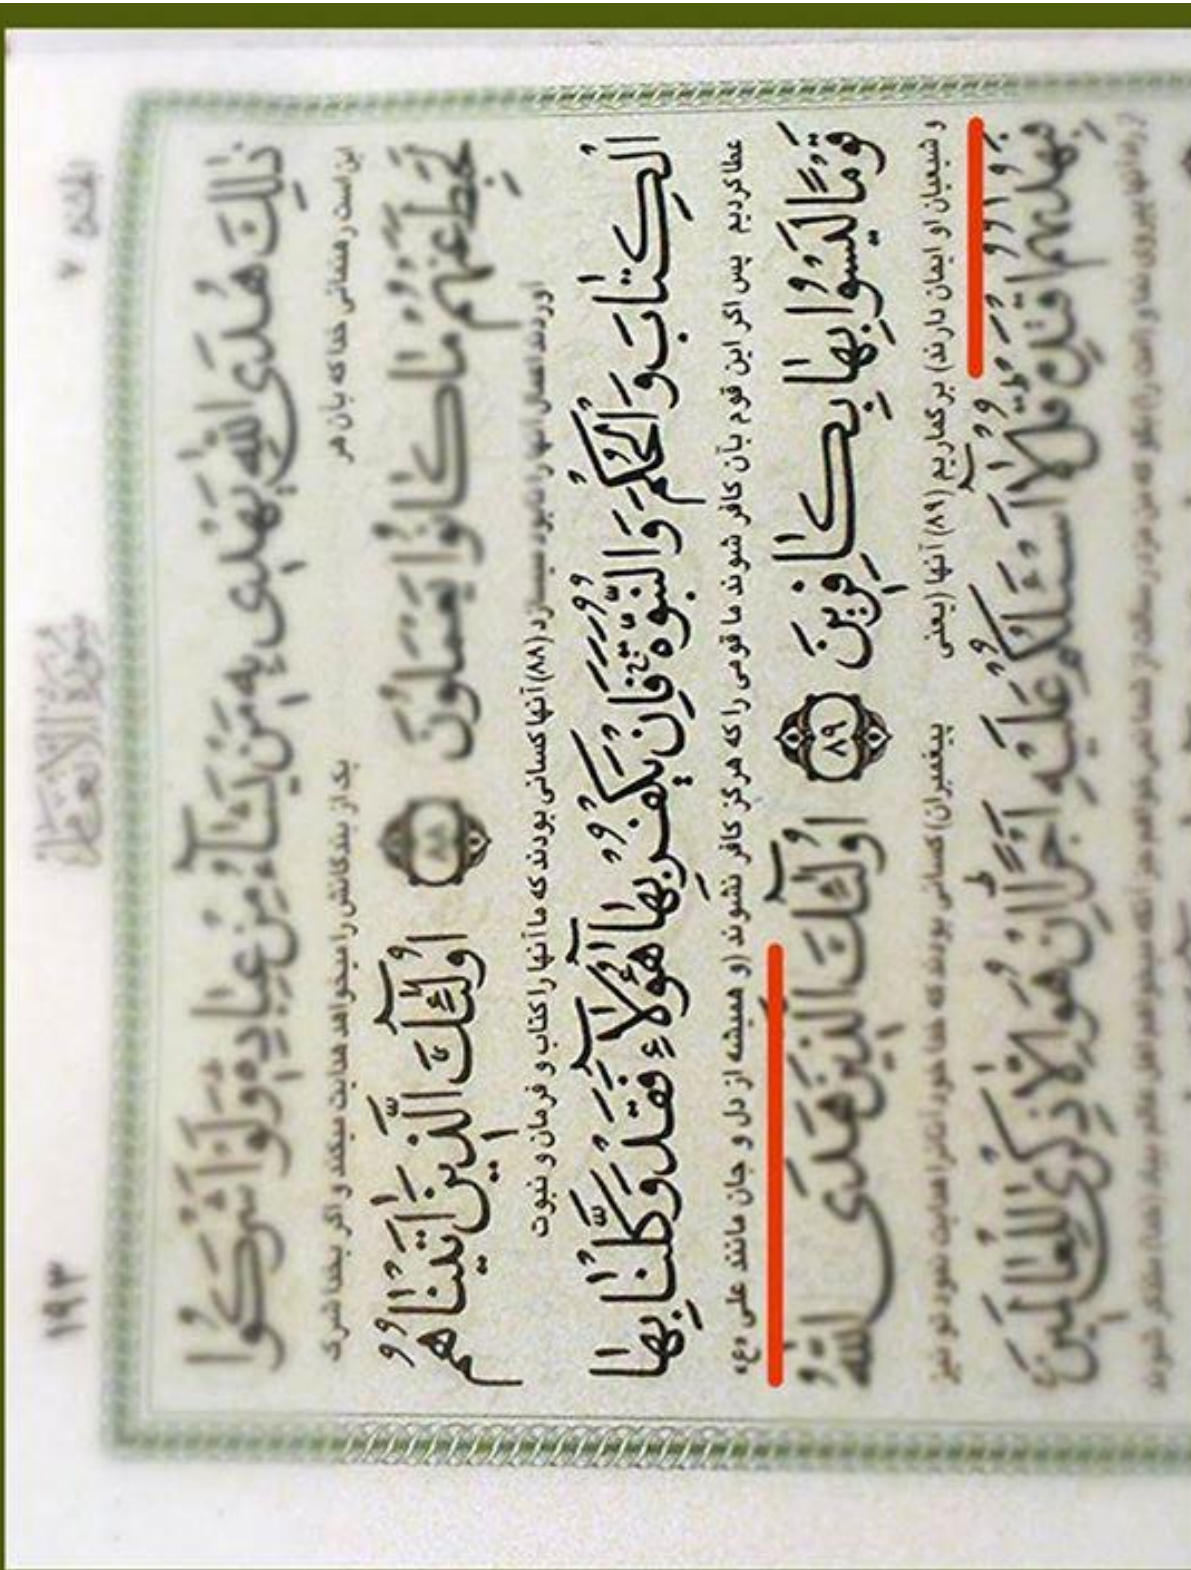 الجزء ۷ سُورَةُ الْاَنْعٰامِ ۱۹۳
ذٰلِكَ هُدَى اللّٰهِ يَهْدٖى بِهٖ مَنْ يَشٰٓاءُ مِنْ عِبٰادِهٖ وَلَوْ اَشْرَكُوا
این است رهنمائی خدا که بآن هر یک از بندگانش را میخواهد هدایت میکند و اگر بخدا شرک
لَحَبِطَ عَنْهُمْ مٰا كٰانُوا يَعْمَلُونَ ۸۸ اُولٰٓئِكَ الَّذٖينَ اٰتَيْنٰاهُمُ
آوردند اعمال آنها را نابود میسازد (۸۸) آنها کسانی بودند که ما آنها را کتاب و فرمان و نبوت
الْكِتٰابَ وَالْحُكْمَ وَالنُّبُوَّةَ فَاِنْ يَكْفُرْ بِهٰا هٰٓؤُلٰٓاءِ فَقَدْ وَكَّلْنٰا بِهٰا
عطا کردیم پس اگر این قوم بآن کافر شوند ما قومی را که هرگز کافر نشوند (و همیشه از دل و جان مانند علی «ع»
قَوْمًا لَيْسُوا بِهٰا بِكٰافِرٖينَ ۸۹ اُولٰٓئِكَ الَّذٖينَ هَدَى اللّٰهُ
و شیعیان او ایمان دارند) برگماریم (۸۹) آنها (یعنی پیغمبران) کسانی بودند که خدا خود آنانرا هدایت نمود تو نیز
فَبِهُدٰيهُمُ اقْتَدِهْ قُلْ لٰٓا اَسْئَلُكُمْ عَلَيْهِ اَجْرًا اِنْ هُوَ اِلّٰا ذِكْرٰى لِلْعٰالَمٖينَ
آنها پیروی نما و امت را) بگو که من مزد رسالت از شما نمی‌خواهم جز آنکه میخواهم اهل عالم بیاد (خدا) متذکر شوند